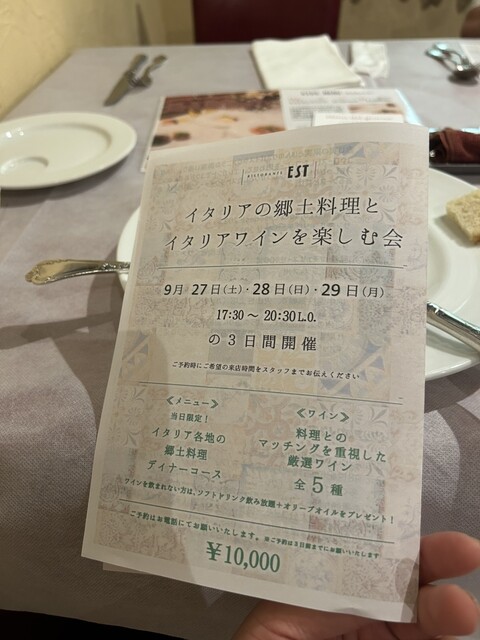 RISTORANTE EST
イタリアの郷土料理と
イタリアワインを楽しむ会
9月 27日(土)・28日(日)・29日(月)
17:30〜20:30L.O.
の3日間開催
ご予約時にご希望の来店時間をスタッフまでお伝えください
≪メニュー≫
当日限定！
イタリア各地の
郷土料理
ディナーコース
≪ワイン≫
料理との
マッチングを重視した
厳選ワイン
全5種
ワインを飲まれない方は、ソフトドリンク飲み放題+オリーブオイルをプレゼント！
ご予約はお電話にてお願いいたします。※ご予約は3日前までにお願いいたします
¥10,000